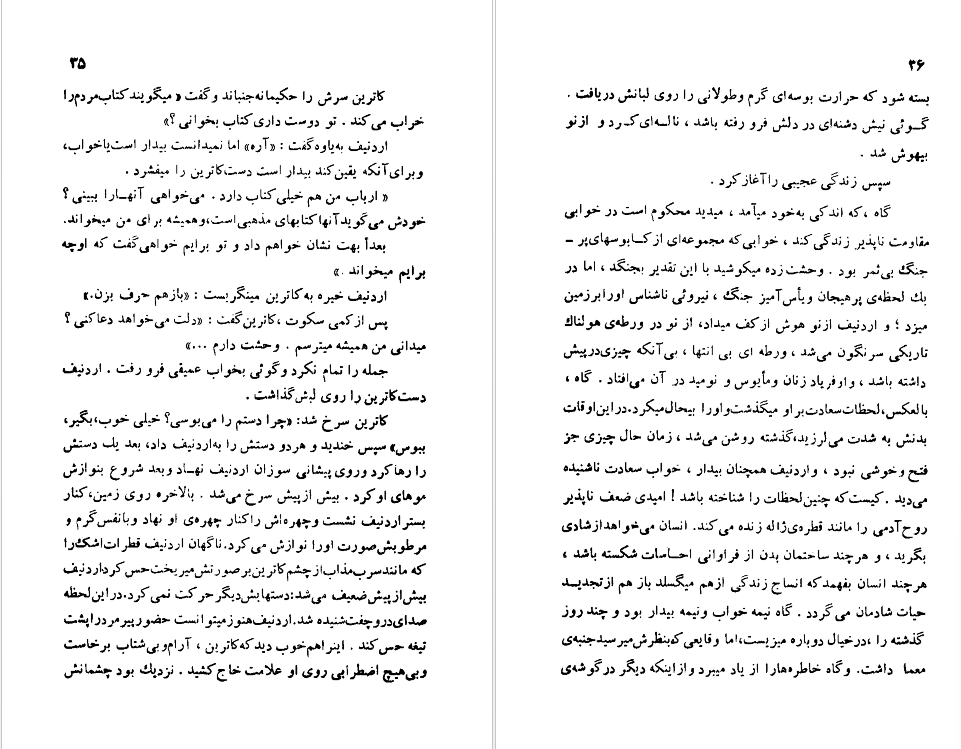 ۳۵
کاترین سرش را حکیمانه‌جنباند وگفت « میگویند کتاب مردم‌را
خراب می‌کند . تو دوست داری کتاب بخوانی ؟»
اردنیف به‌یاوه‌گفت : «آره» اما نمیدانست بیدار است‌یاخواب،
وبرای آنکه یقین‌کند بیدار است دست‌کاترین را میفشرد .
« ارباب من هم خیلی‌کتاب دارد . می‌خواهی آنهـارا ببینی ؟
خودش می‌گوید آنها کتابهای مذهبی‌است،وهمیشه برای من میخواند.
بعداً بهت نشان خواهم داد و تو برایم خواهی‌گفت که اوچه
برایم میخواند .»
اردنیف خیره به‌کاترین مینگریست : «بازهم حرف بزن.»
پس از کمی سکوت ،کاترین‌گفت : «دلت می‌خواهد دعاکنی ؟
میدانی من همیشه میترسم . وحشت دارم ...»
جمله را تمام نکرد وگوئی بخواب عمیقی فرو رفت . اردنیف
دست‌کاترین را روی لبش‌گذاشت .
کاترین سرخ شد: «چرا دستم را می‌بوسی؟ خیلی خوب،بگیر،
ببوس» سپس خندید و هردو دستش را به‌اردنیف داد، بعد یك دستش
را رهاکرد وروی پیشانی سوزان اردنیف نهـاد وبعد شروع بنوازش
موهای اوکرد . بیش ازپیش سرخ می‌شد . بالاخره روی زمین،کنار
بستر اردنیف نشست وچهره‌اش راکنار چهره‌ی او نهاد وبانفس‌گرم و
مرطوبش‌صورت اورا نوازش می‌کرد. ناگهان اردنیف قطرات اشك‌را
که مانند سرب‌مذاب‌ازچشم کاترین‌بر صورتش‌میریخت حس‌کرد اردنیف
بیش‌ازپیش ضعیف می‌شد:دستهایش‌دیگر حرکت نمی‌کرد. دراین‌لحظه
صدای‌دروچفت‌شنیده شد.اردنیف هنوز میتوانست حضور پیرمرد رادرپشت
تیغه حس‌کند . اینراهم‌خوب دید که‌کاترین ، آرام‌وبی‌شتاب برخاست
وبی‌هیچ اضطرابی روی او علامت خاج‌کشید . نزدیك بود چشمانش
۳۶
بسته شود که حرارت بوسه‌ای گرم وطولانی را روی لبانش دریافت .
گـوئی نیش دشنه‌ای در دلش فرو رفته باشد ، نالـه‌ای‌کـرد و ازنو
بیهوش شد .
سپس زندگی عجیبی را آغازکرد .
گاه ،که اندکی به‌خود میآمد ، میدید محکوم است در خوابی
مقاومت ناپذیر زندگی‌کند ، خوابی‌که مجموعه‌ای ازکـابوسهای‌پر ــ
جنگ بی‌ثمر بود . وحشت‌زده میکوشید با این تقدیر بجنگد ، اما در
یك لحظه‌ی پرهیجان ویأس‌آمیز جنگ ، نیروئی ناشناس اورا برزمین
میزد ؛ و اردنیف ازنو هوش ازکف میداد، از نو در ورطه‌ی هولناك
تاریکی سرنگون می‌شد ، ورطه ای بی انتها ، بی‌آنکه چیزی‌درپیش
داشته باشد ، واو فریاد زنان ومأیوس و نومید در آن می‌افتاد . گاه ،
بالعکس،لحظات‌سعادت‌بر او میگذشت‌واورا بیحال‌میکرد.دراین‌اوقات
بدنش به شدت می‌لرزید،گذشته روشن می‌شد ، زمان حال چیزی جز
فتح وخوشی نبود ، واردنیف همچنان بیدار ، خواب سعادت ناشنیده
می‌دید . کیست‌که چنین‌لحظات را شناخته باشد ! امیدی ضعف ناپذیر
روح‌آدمی را مانند قطره‌ی‌ژاله زنده می‌کند. انسان می‌خواهد ازشادی
بگرید ، و هرچند ساختمان بدن از فراوانی احـاسات شکسته باشد ،
هرچند انسان بفهمدکه انساج زندگی ازهم میگسلد باز هم ازتجدیـد
حیات شادمان می‌گردد . گاه نیمه خواب ونیمه بیدار بود و چند روز
گذشته را ،درخیال دوباره میزیست،اما وقایعی‌که‌بنظرش‌میرسیدجنبه‌ی
معما داشت. وگاه خاطره‌هارا از یاد میبرد وازاینکه دیگر درگوشه‌ی